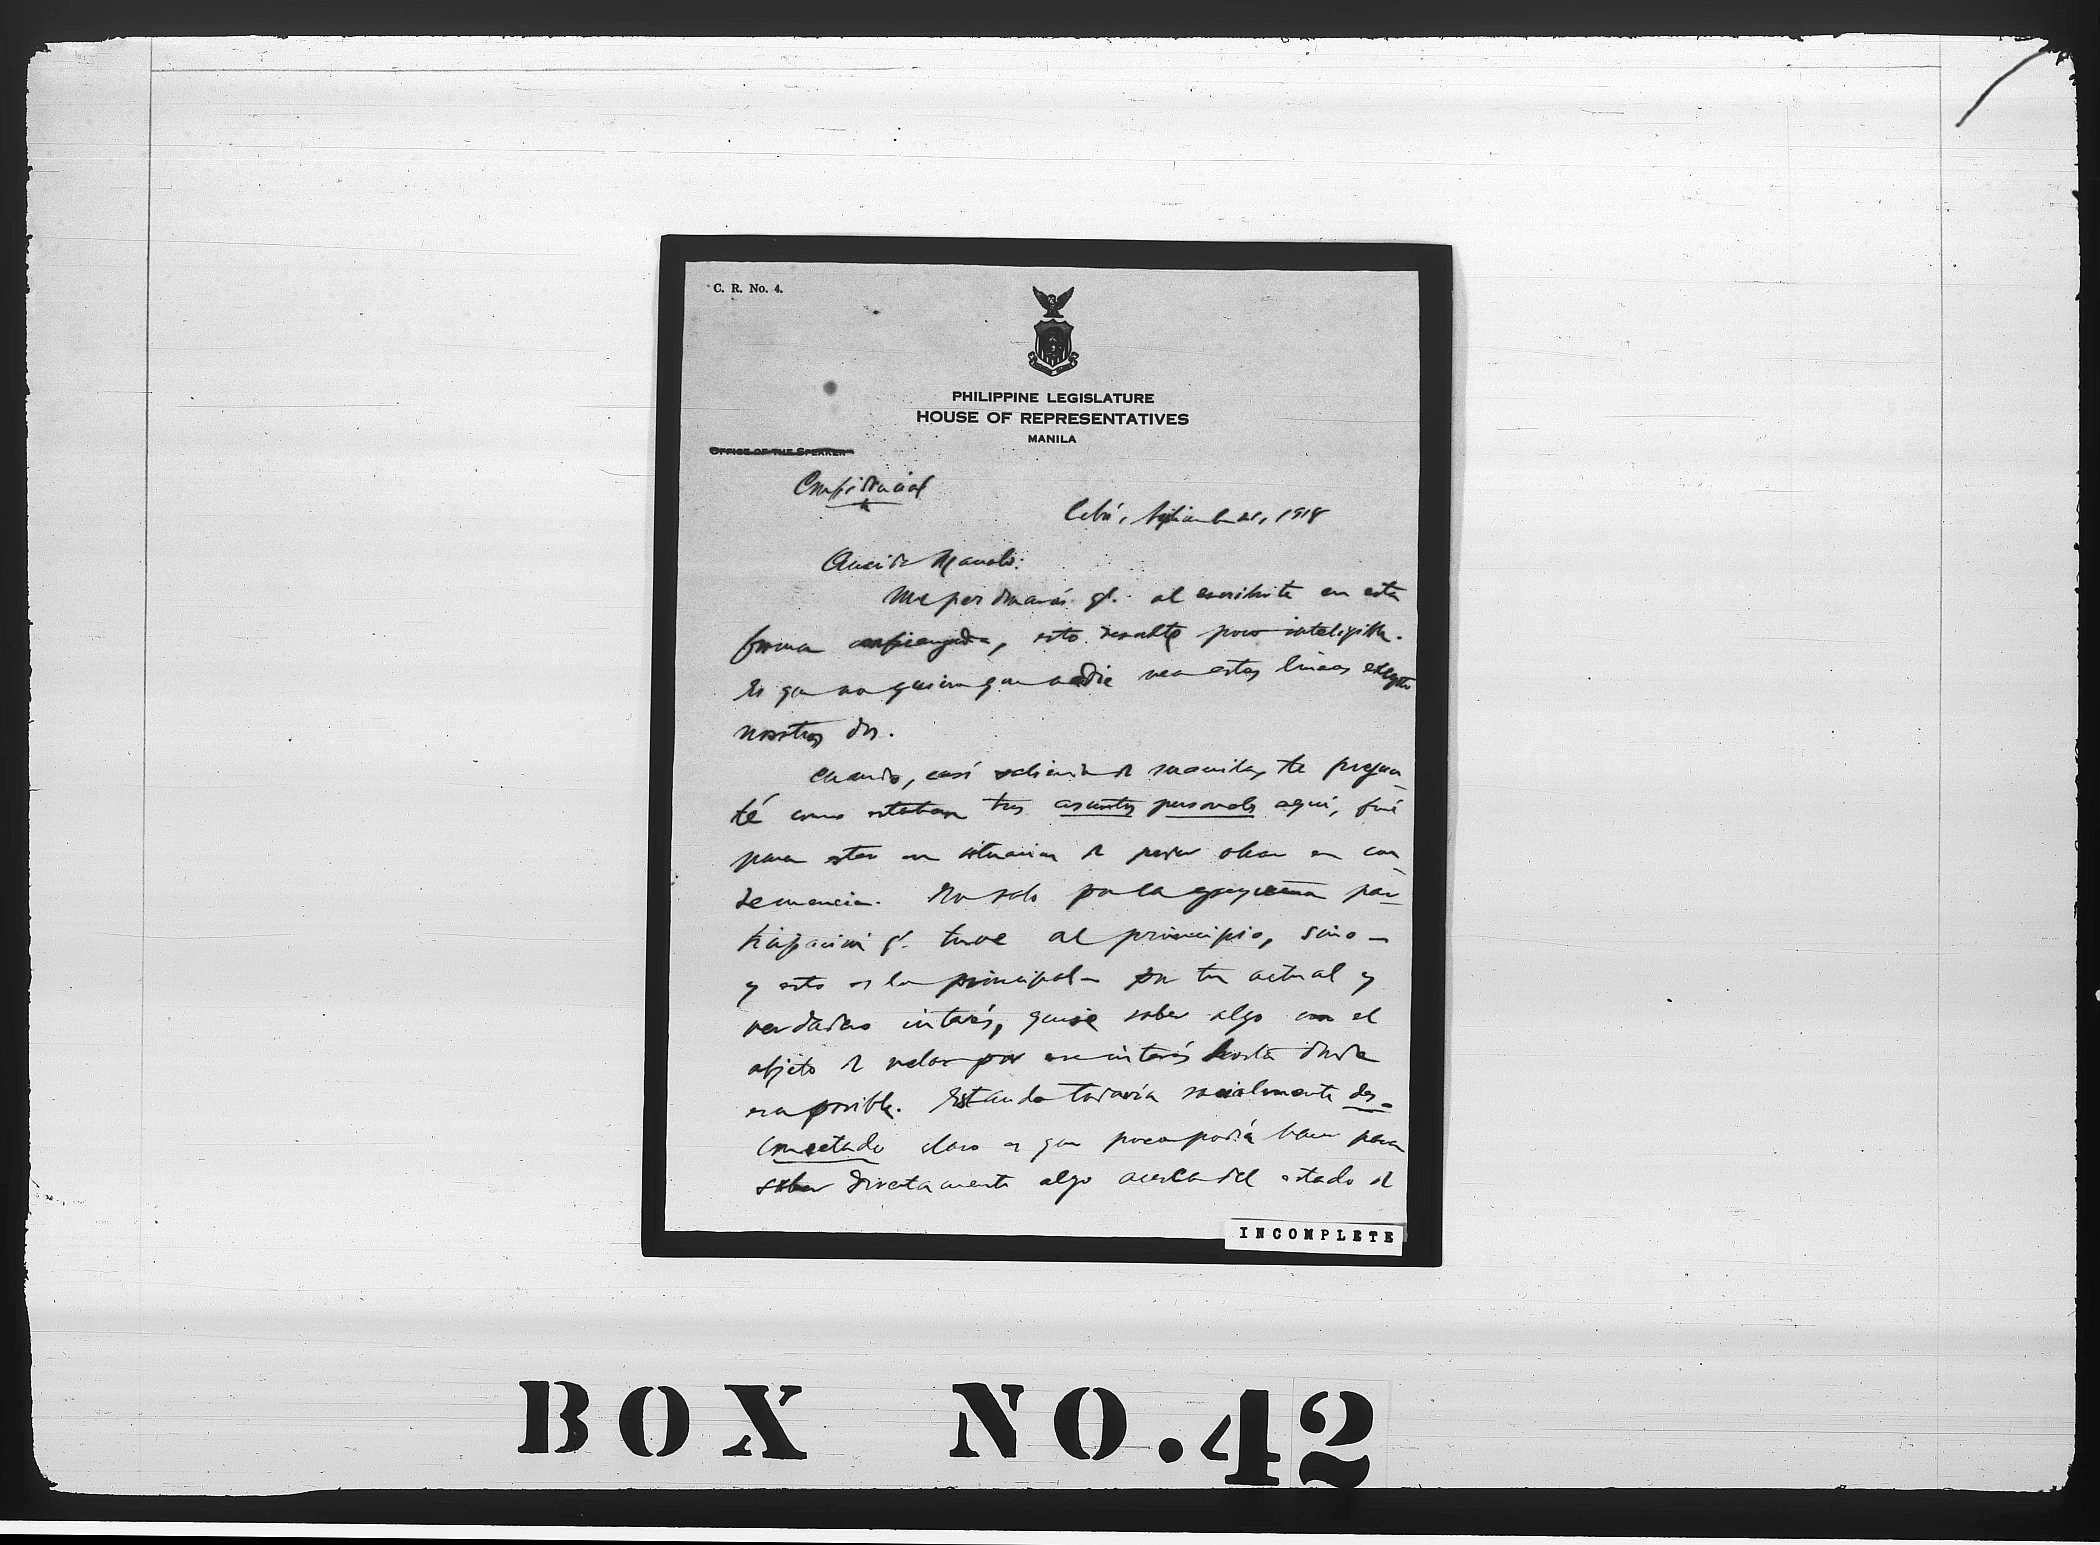 C. R. No. 4.
PHILIPPINE LEGISLATURE
HOUSE OF REPRESENTATIVES
MANILA
OFFICE OF THE SPEAKER
Confidencial
Cebú, Septiembre 21, 1918
Querido Manolo:
Me perdonarás q'. al escribirte en esta
forma, esto resulte poco inteligible.
Es que no quisiera que nadie vea estas lineas excepto
nosotros dos.
Cuando, casi saliendo de Manila, te pregun-
té como estaban tus asuntos personales aquí, fué
para estar en situacion de poder obrar en con
secuencia. No solo por la pequeña par-
ticipación q'. tuve al principio, sino —
y esto es lo principal — por tu actual y
verdadero interés, quise saber algo con el
objeto de velar por ese interés hasta donde
era posible. Estando todavía socialmente des-
conectado claro es que poco podía hacer para
saber directamente algo acerca del estado de
INCOMPLETE
BOX NO. 42